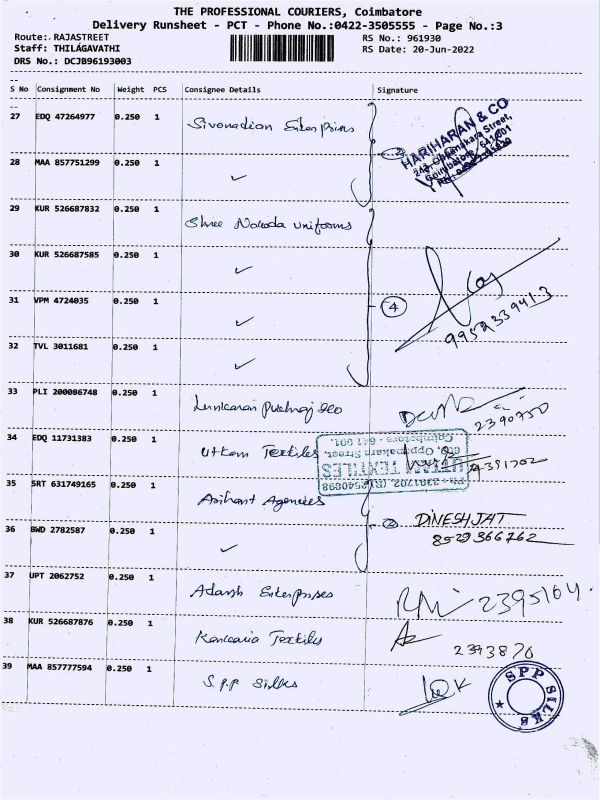 THE PROFESSIONAL COURIERS, Coimbatore
Delivery Runsheet - PCT - Phone No.:0422-3505555 - Page No.:3
Route: RAJASTREET RS No.: 961930
Staff: THILAGAVATHI RS Date: 20-Jun-2022
DRS No.: DCJB96193003
S No Consignment No Weight PCS Consignee Details Signature
27 EDQ 47264977 0.250 1
HARIHARAN & CO
Oppanakara Street,
Coimbatore 641 001
28 MAA 857751299 0.250 1
29 KUR 526687832 0.250 1 Shree uniforms
30 KUR 526687585 0.250 1
31 VPM 4724035 0.250 1 4 9952339413
32 TVL 3011681 0.250 1
33 PLI 200086748 0.250 1 2390750
34 EDQ 11731383 0.250 1 Uttam Textiles 2391702
Ph : 2391702, (R) 2540898
UTTAM TEXTILES
Oppanakara Street,
Coimbatore - 641 001.
35 SRT 631749165 0.250 1 Arihant Agencies
36 BWD 2782587 0.250 1 2 DINESH JAT
8529366762
37 UPT 2062752 0.250 1 Adarsh Enterprises 2395104
38 KUR 526687876 0.250 1 Kankaria Textiles 2393870
39 MAA 857777594 0.250 1 S.P.P Silks
SPP SILKS